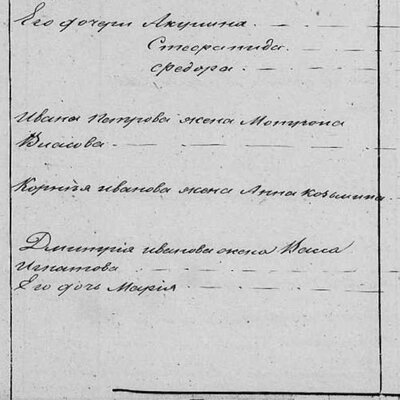 Его дочери Акулина
Стефанида
Федора
Ивана Петрова жена Матрона
Власова
Корнїя Иванова жена Анна Козьмина
Дмитрія Иванова жена Васса
Игнатова
Его дочь Марія